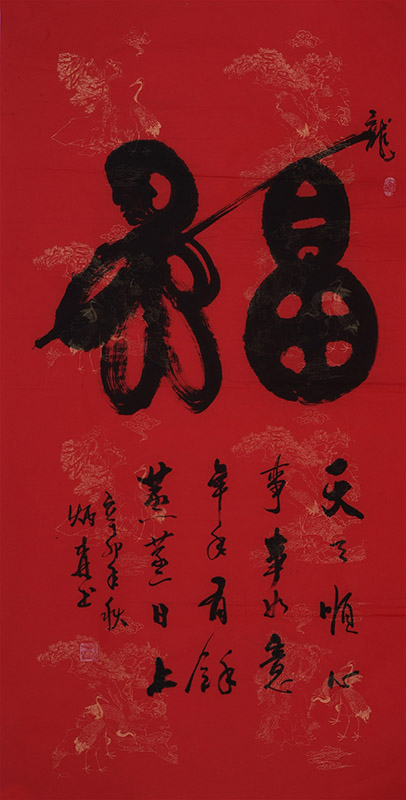 龍
福
天天順心
事事如意
年年有餘
蒸蒸日上
辛卯年秋
炳书